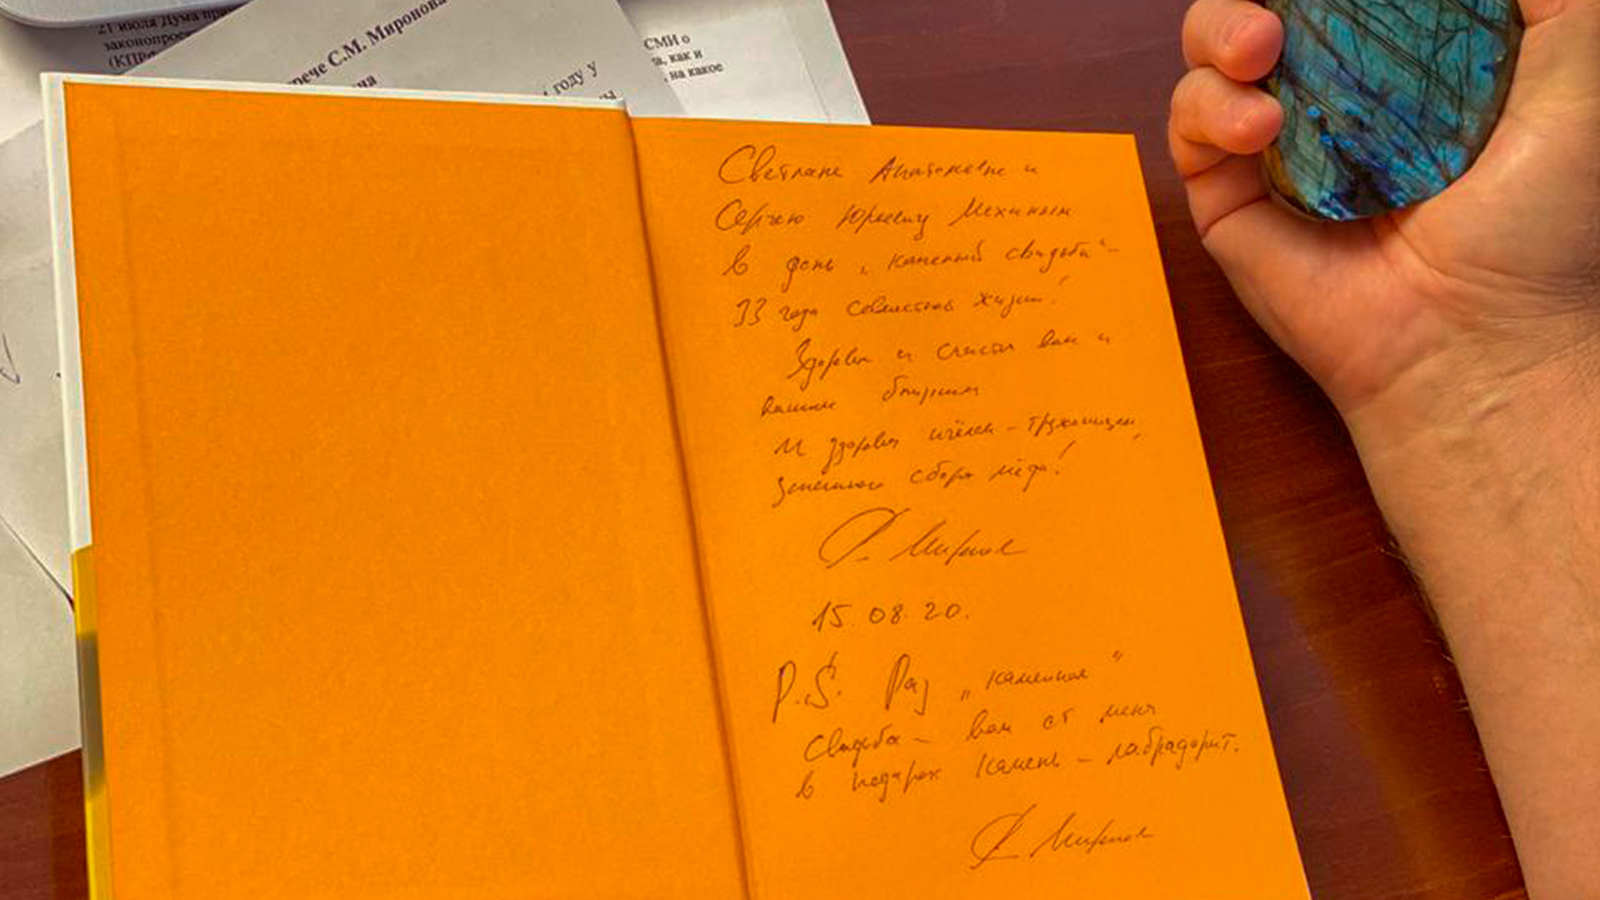 21 июля Дума при
законопроек
(КПРФ
рече С.М. Миронова
на
году у
СМИ о
а, как и
, на какое
Светлане Анатольевне и
Сергею Юрьевичу Мехиным
в день „каменной свадьбы“ –
33 года совместной жизни!
Здоровья и счастья вам и
вашим близким
И здоровья пчёлам – труженицам,
успешного сбора мёда!
С. Миронов
15.08.20.
P.S. Раз „каменная“
свадьба – вам от меня
в подарок камень – лабрадорит.
С. Миронов